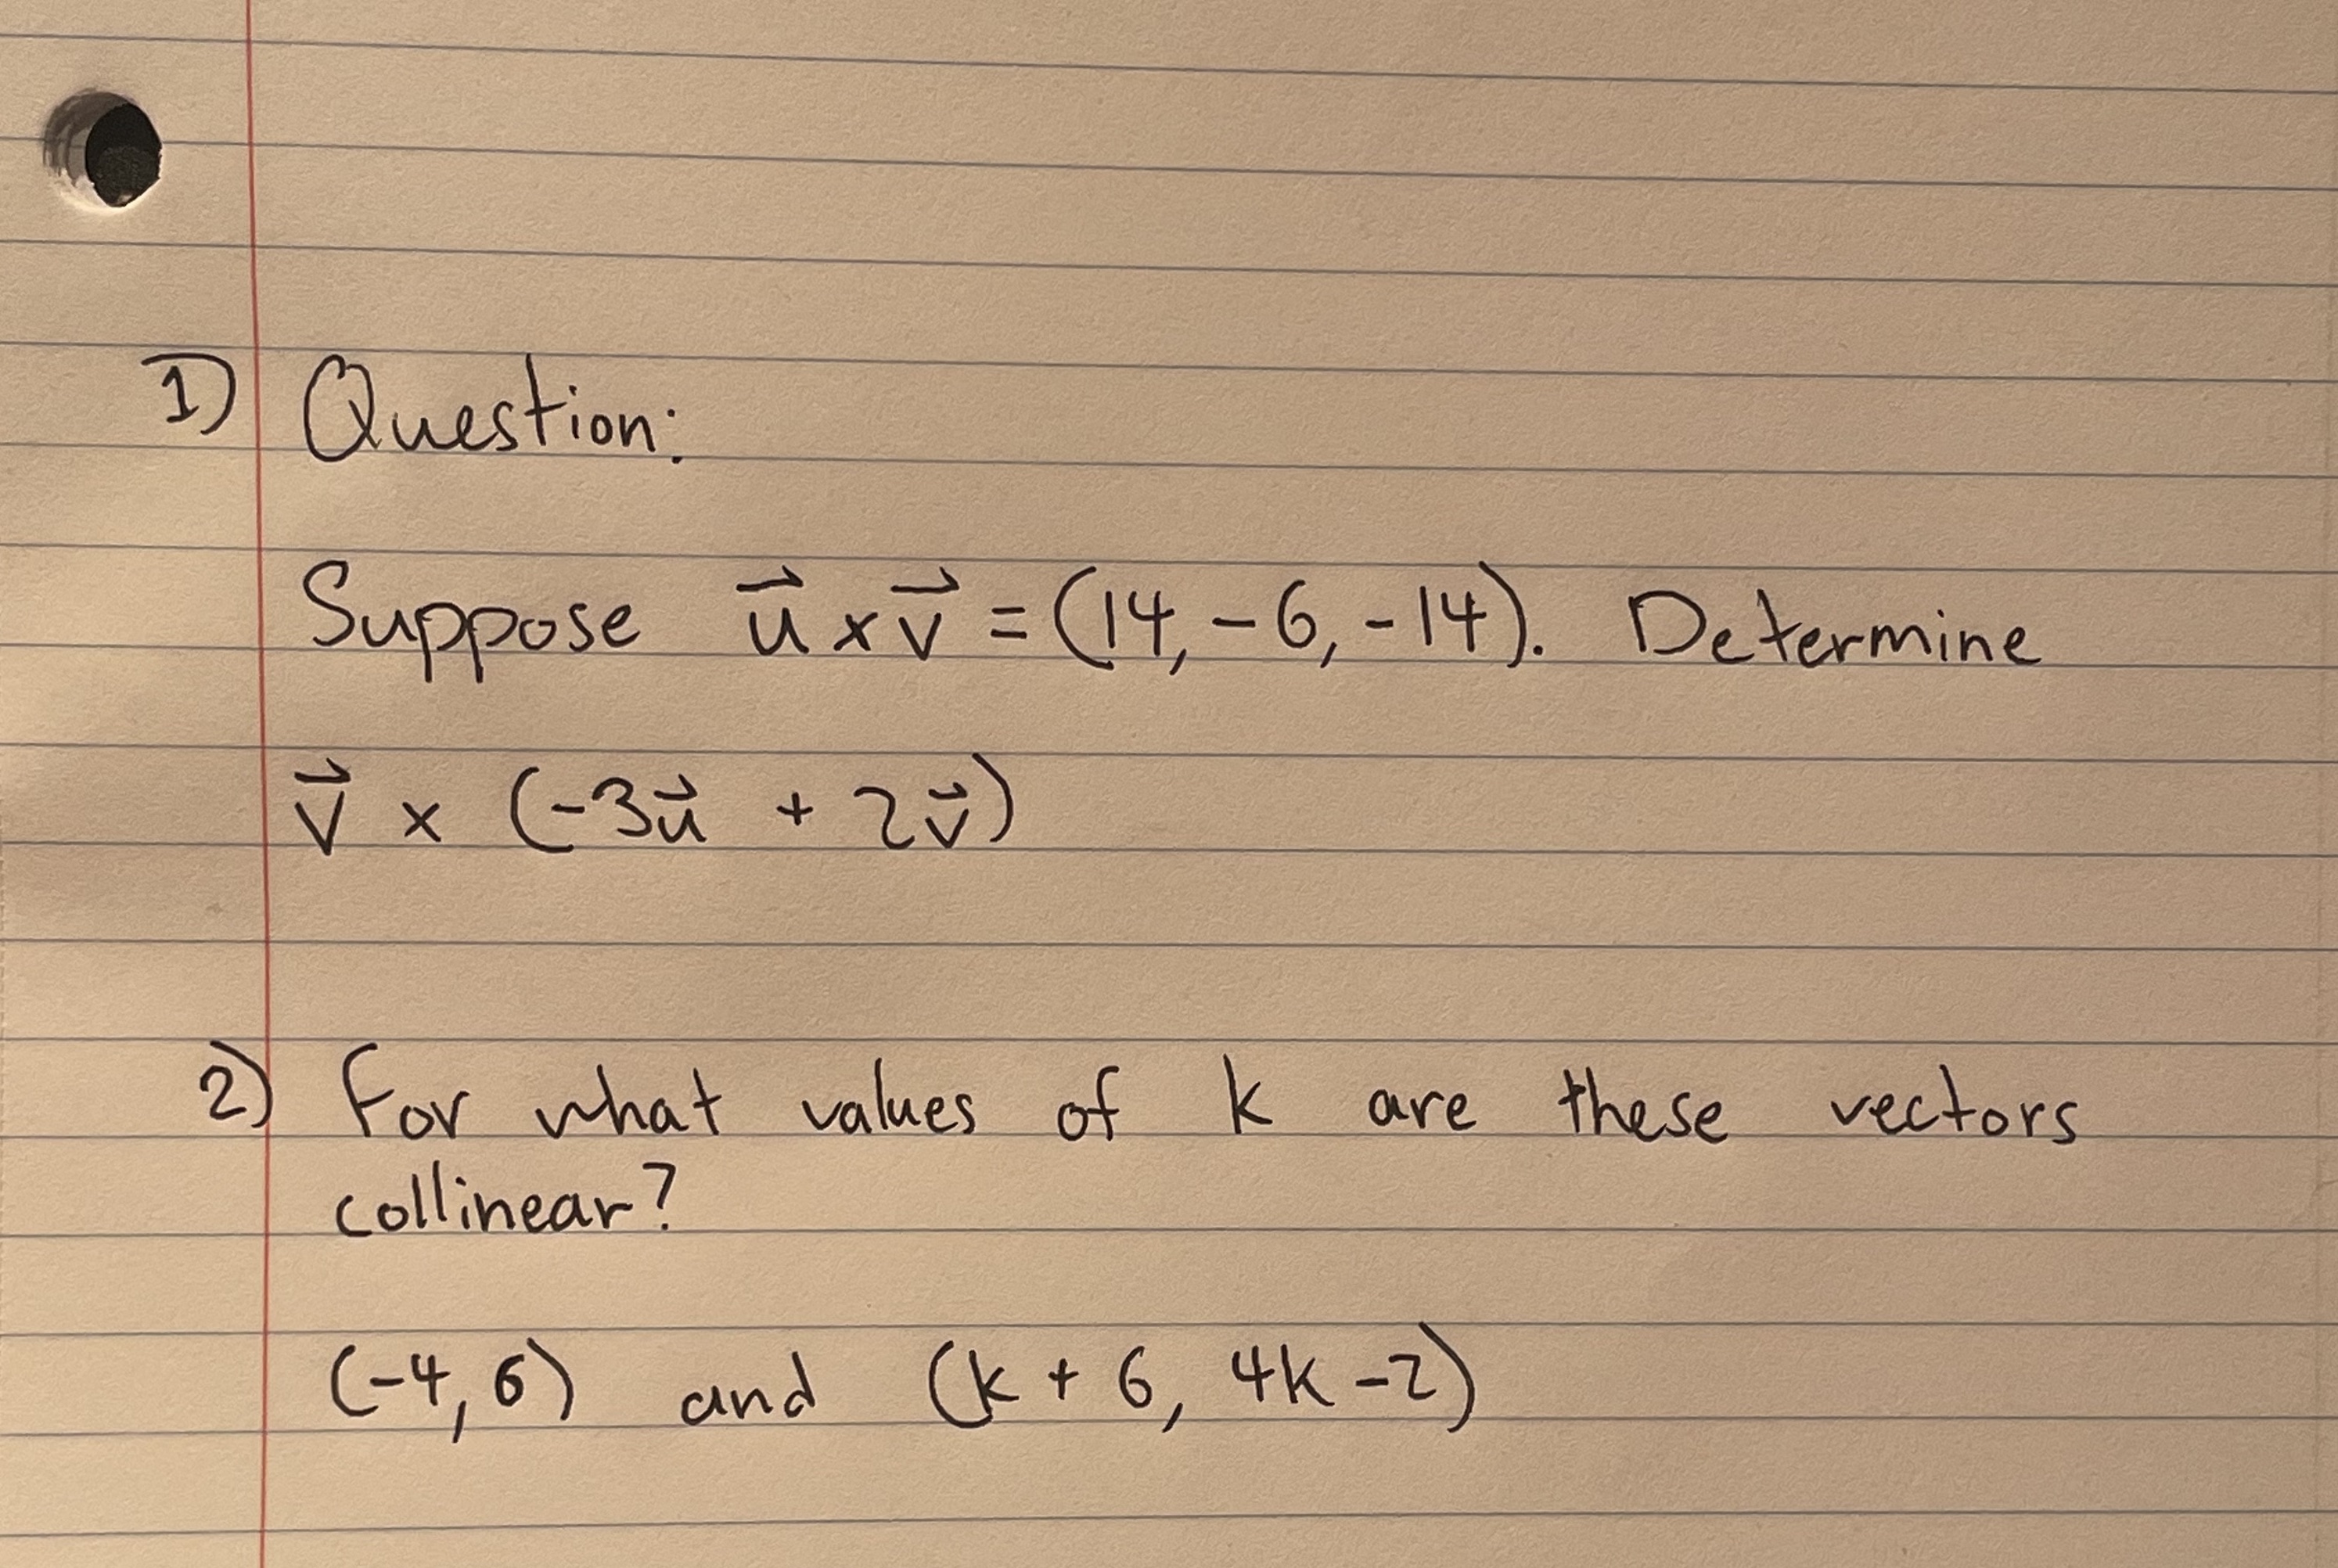 1) Question:
Suppose u⃗ × v⃗ = (14, -6, -14). Determine
v⃗ × (-3u⃗ + 2v⃗)
2) For what values of k are these vectors
collinear?
(-4, 6) and (k + 6, 4k - 2)